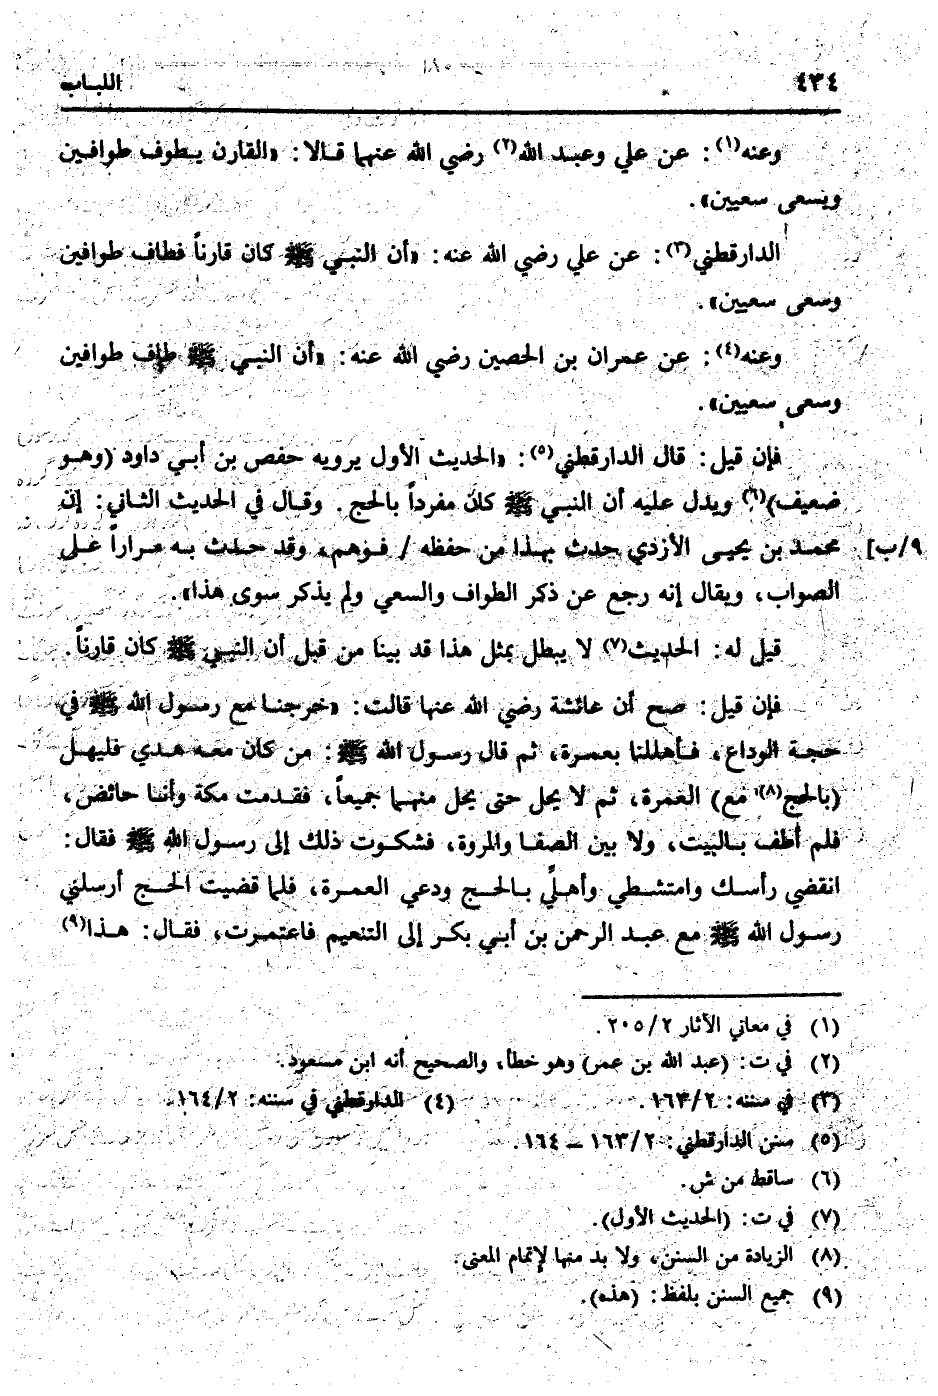 ٤٣٤ اللباب
وعنه(١): عن علي وعبد الله(٢) رضي الله عنهما قالا: «القارن يطوف طوافين
ويسعى سعيين».
الدارقطني(٣): عن علي رضي الله عنه: «أن النبي ﷺ كان قارناً فطاف طوافين
وسعى سعيين».
وعنه(٤): عن عمران بن الحصين رضي الله عنه: «أن النبي ﷺ طاف طوافين
وسعى سعيين».
فإن قيل: قال الدارقطني(٥): «الحديث الأول يرويه حفص بن أبي داود (وهو
ضعيف)(٦) ويدل عليه أن النبي ﷺ كان مفرداً بالحج. وقال في الحديث الثاني: إن
٩/ب] محمد بن يحيى الأزدي حدث بهذا من حفظه / فوهم، وقد حدث به مراراً على
الصواب، ويقال إنه رجع عن ذكر الطواف والسعي ولم يذكر سوى هذا».
قيل له: الحديث(٧) لا يبطل بمثل هذا قد بينا من قبل أن النبي ﷺ كان قارناً.
فإن قيل: صح أن عائشة رضي الله عنها قالت: «خرجنا مع رسول الله ﷺ في
حجة الوداع، فأهللنا بعمرة، ثم قال رسول الله ﷺ: من كان معه هدي فليهل
(بالحج(٨) مع) العمرة، ثم لا يحل حتى يحل منهما جميعاً، فقدمت مكة وأنا حائض،
فلم أطف بالبيت، ولا بين الصفا والمروة، فشكوت ذلك إلى رسول الله ﷺ فقال:
انقضي رأسك وامتشطي وأهلِّي بالحج ودعي العمرة، فلما قضيت الحج أرسلني
رسول الله ﷺ مع عبد الرحمن بن أبي بكر إلى التنعيم فاعتمرت، فقال: هذا(٩)
(١) في معاني الآثار ٢٠٥/٢.
(٢) في ت: (عبد الله بن عمر) وهو خطأ، والصحيح أنه ابن مسعود.
(٣) في سننه: ١٦٣/٢. (٤) الدارقطني في سننه: ١٦٤/٢.
(٥) سنن الدارقطني: ١٦٣/٢ – ١٦٤.
(٦) ساقط من ش.
(٧) في ت: (الحديث الأول).
(٨) الزيادة من السنن، ولا بد منها لإتمام المعنى.
(٩) جميع السنن بلفظ: (هذه).